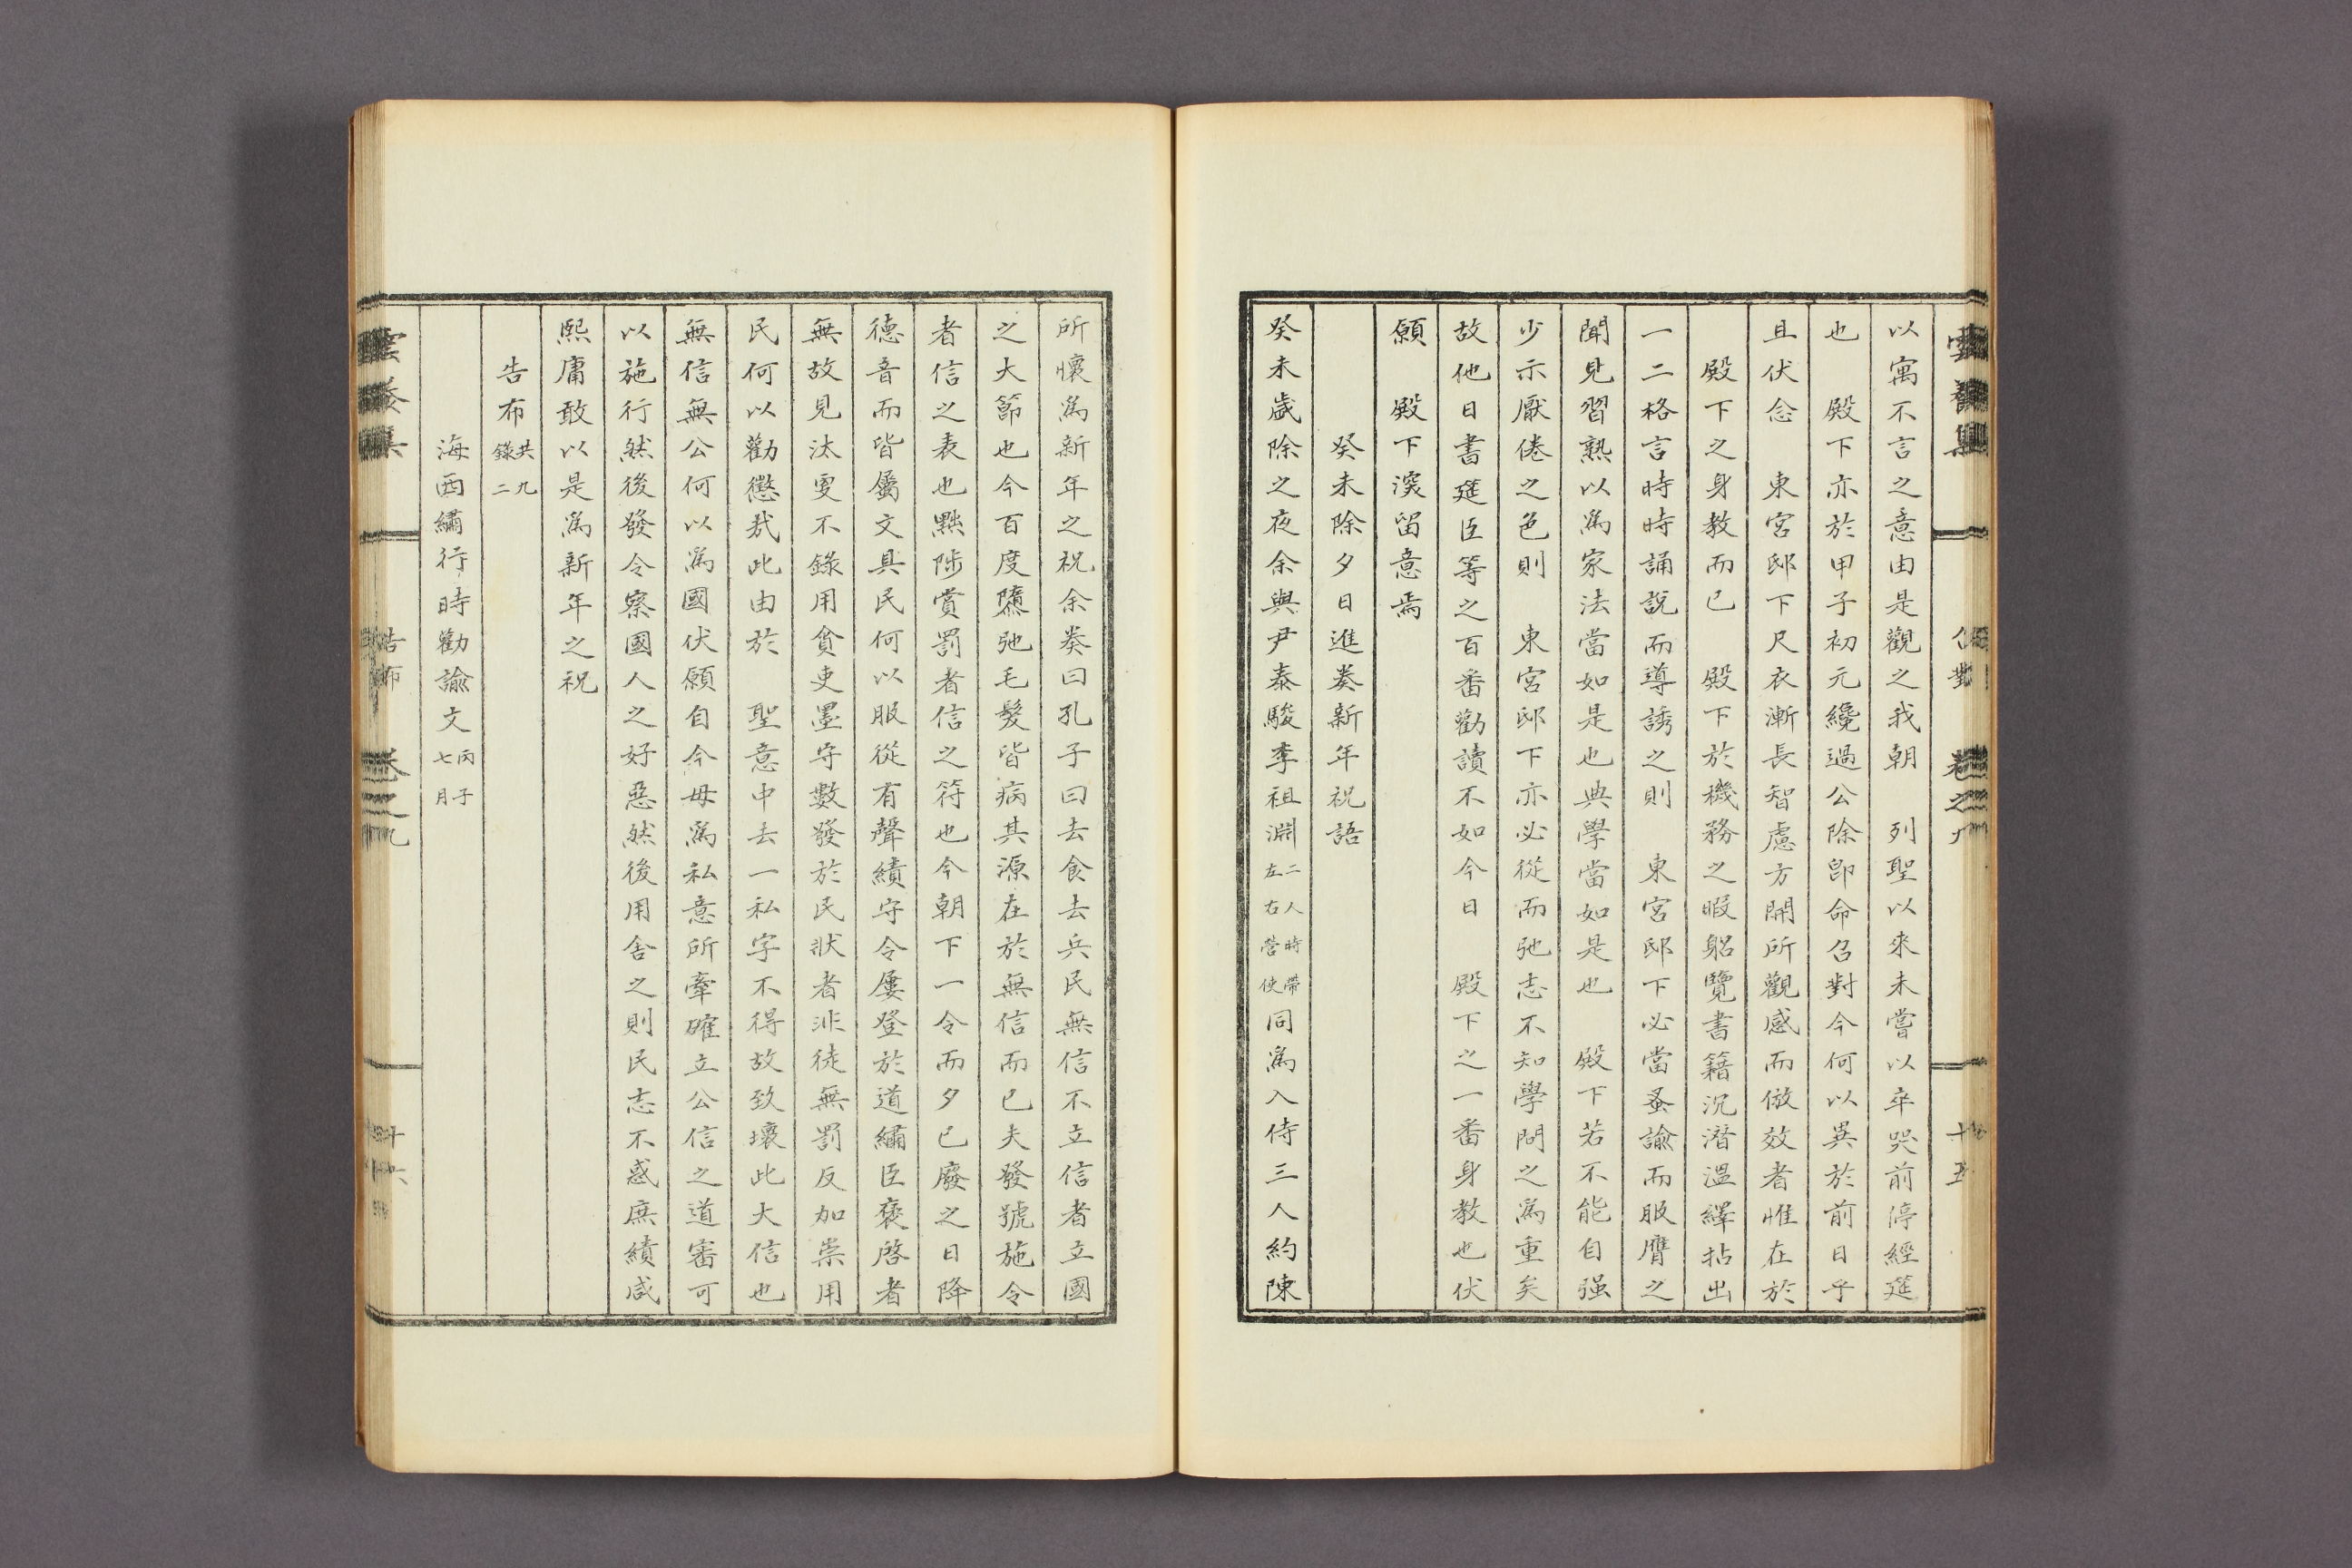 雲養集 召對 卷之九 十五
以寓不言之意由是觀之我朝 列聖以來未嘗以卒哭前停經筵
也 殿下亦於甲子初元纔過公除卽命召對今何以異於前日乎
且伏念 東宮邸下尺衣漸長智慮方開所觀感而倣效者惟在於
殿下之身教而已 殿下於機務之暇躬覽書籍沉潛溫繹拈出
一二格言時時誦說而導誘之則 東宮邸下必當蚤諭而服膺之
聞見習熟以爲家法當如是也典學當如是也 殿下若不能自强
少示厭倦之色則 東宮邸下亦必從而弛志不知學問之爲重矣
故他日書筵臣等之百番勸讀不如今日 殿下之一番身教也伏
願 殿下深留意焉
癸未除夕日進奏新年祝語
癸未歲除之夜余與尹泰駿李祖淵二人時帶左右營使同爲入侍三人約陳
所懷爲新年之祝余奏曰孔子曰去食去兵民無信不立信者立國
之大節也今百度隳弛毛髮皆病其源在於無信而已夫發號施令
者信之表也黜陟賞罰者信之符也今朝下一令而夕已廢之日降
德音而皆屬文具民何以服從有聲績守令屢登於道繡臣褒啓者
無故見汰更不錄用貪吏墨守數發於民狀者非徒無罰反加崇用
民何以勸懲哉此由於 聖意中去一私字不得故致壞此大信也
無信無公何以爲國伏願自今毋爲私意所牽確立公信之道審可
以施行然後發令察國人之好惡然後用舍之則民志不惑庶績咸
熙庸敢以是爲新年之祝
告布共九錄二
海西繡行時勸諭文丙子七月
雲養集 告布 卷之九 十六